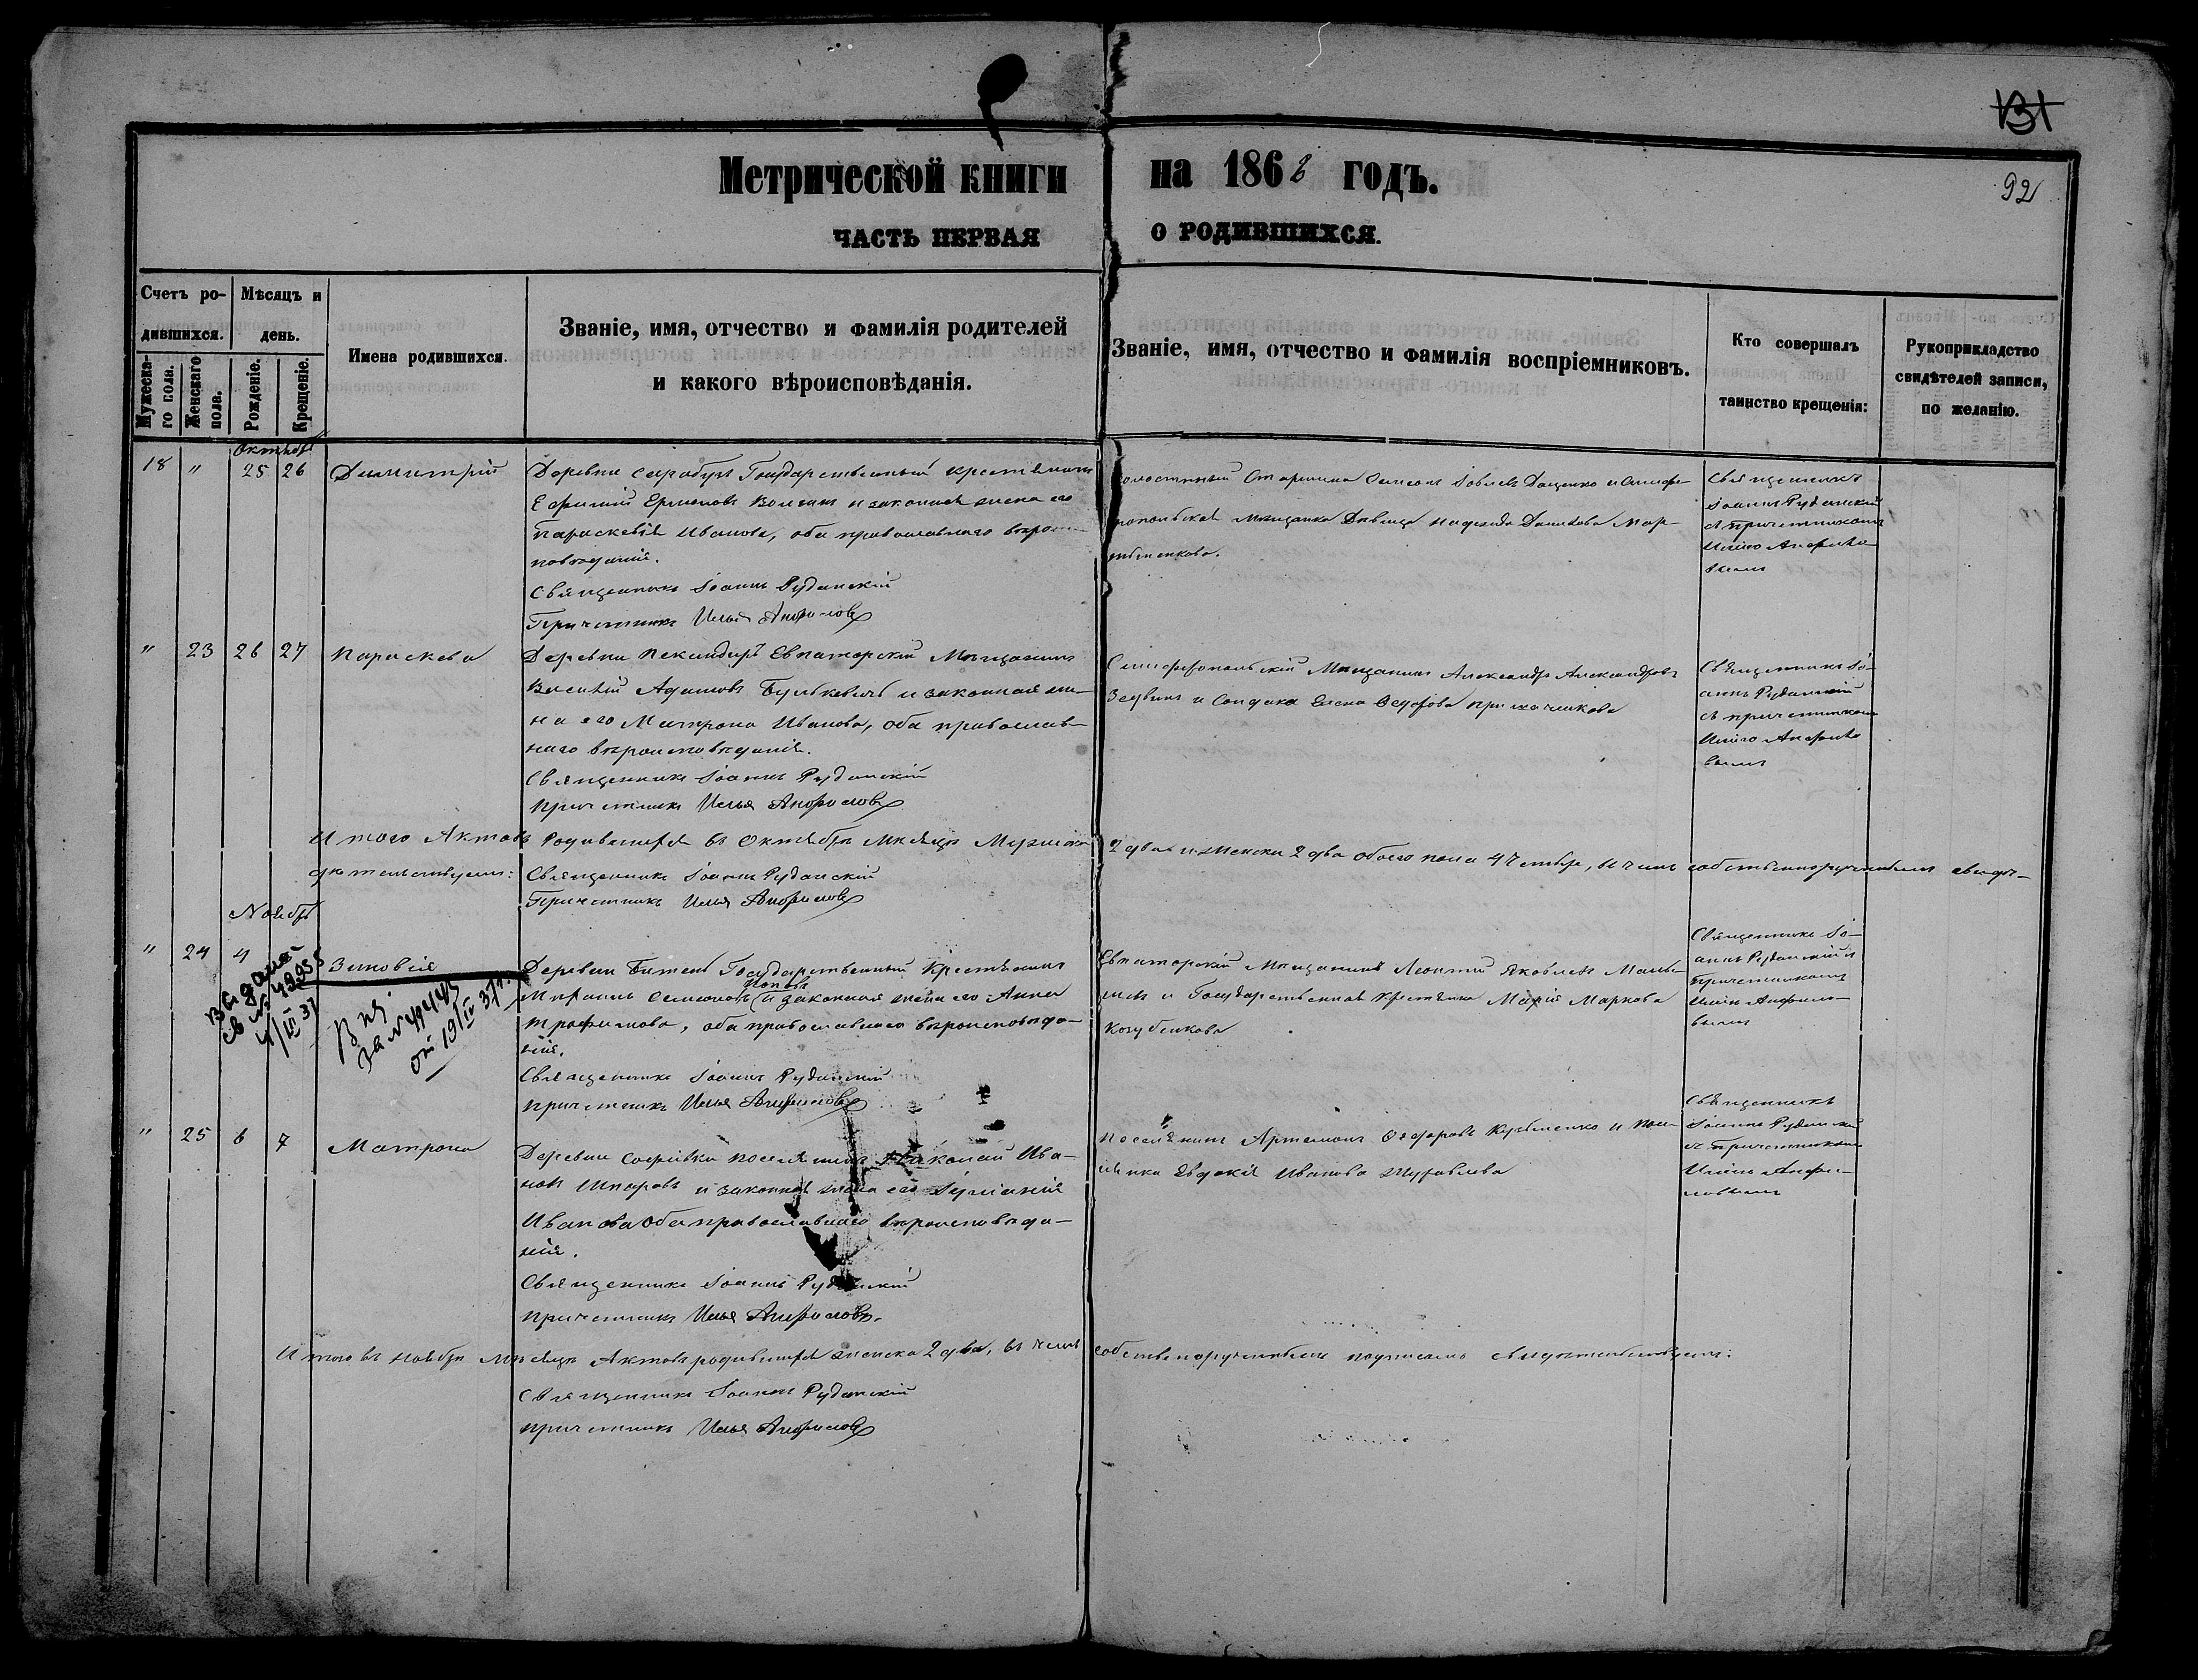 131
92
Метрической книги на 1862 годъ.
ЧАСТЬ ПЕРВАЯ О РОДИВШИХСЯ.
Счетъ ро-
дившихся.
Мужеска-
го пола.
Женскаго
пола.
Мѣсяцъ и
день.
Рожденіе.
Крещеніе.
Имена родившихся.
Званіе, имя, отчество и фамилія родителей
и какого вѣроисповѣданія.
Званіе, имя, отчество и фамилія воспріемниковъ.
Кто совершалъ
таинство крещенія:
Рукоприкладство
свидѣтелей записи,
по желанію.
Октябрь
18 " 25 26 Димитрій
Деревни Государственный крестьянинъ
Ефимій и законная жена его
Параскевія Иванова, оба православнаго вѣроис-
повѣданія.
Священникъ Іоаннъ Руданскій
Причетникъ Илья Анфиловъ
Старшина Симеонъ Даценко и Симфе-
ропольская мѣщанка Дѣвица Надежда Мар-
Священникъ
Іоаннъ Руданскій
съ причетникомъ
Иліею Анфило-
вымъ
" 23 26 27 Параскева
Деревни Евпаторскій Мѣщанинъ
Василій Адамовъ и законная же-
на его Матрона Иванова, оба православ-
наго вѣроисповѣданія.
Священникъ Іоаннъ Руданскій
Причетникъ Илья Анфиловъ
Симферопольскій Мѣщанинъ Александръ Александровъ
и Елена Федорова
Священникъ Іо-
аннъ Руданскій
съ причетникомъ
Иліею Анфило-
вымъ
Итого Актовъ Родившихся въ Октябрѣ мѣсяцѣ Мужеска 2 два и Женска 2 два обоего пола 4 четыре, въ чемъ собственноручнымъ свидѣ-
тельствуемъ:
Священникъ Іоаннъ Руданскій
Причетникъ Илья Анфиловъ
Ноябрь
" 24 4
Зиновія
Выдано
св № 42955
4/III 37
за № 49445
от 19/III 37 г.
Деревни Битень Государственный Крестьянинъ
Миронъ Семеоновъ Поповъ и законная жена его Анна
Трофимова, оба православнаго вѣроисповѣда-
нія.
Священникъ Іоаннъ Руданскій
Причетникъ Илья Анфиловъ
Евпаторскій Мѣщанинъ Леонтій Яковлевъ
и Государственная Крестьянка Марія Маркова
Козубенкова
Священникъ Іо-
аннъ Руданскій и
причетникомъ
Иліею Анфило-
вымъ
" 25 6 7 Матрона
Деревни Софіевки поселянинъ Николай Ива-
новъ и законная жена его
Иванова оба православнаго вѣроисповѣда-
нія.
Священникъ Іоаннъ Руданскій
Причетникъ Илья Анфиловъ
Поселянинъ Артемонъ Федоровъ Кузьменко и посе-
лянка Евдокія Иванова Журавлева
Священникъ
Іоаннъ Руданскій
съ Причетникомъ
Иліею Анфи-
ловымъ
Итого въ Ноябрѣ Мѣсяцѣ Актовъ родившихся женска 2 два, въ чемъ собственоручнымъ подписомъ свидѣтельствуемъ:
Священникъ Іоаннъ Руданскій
Причетникъ Илья Анфиловъ